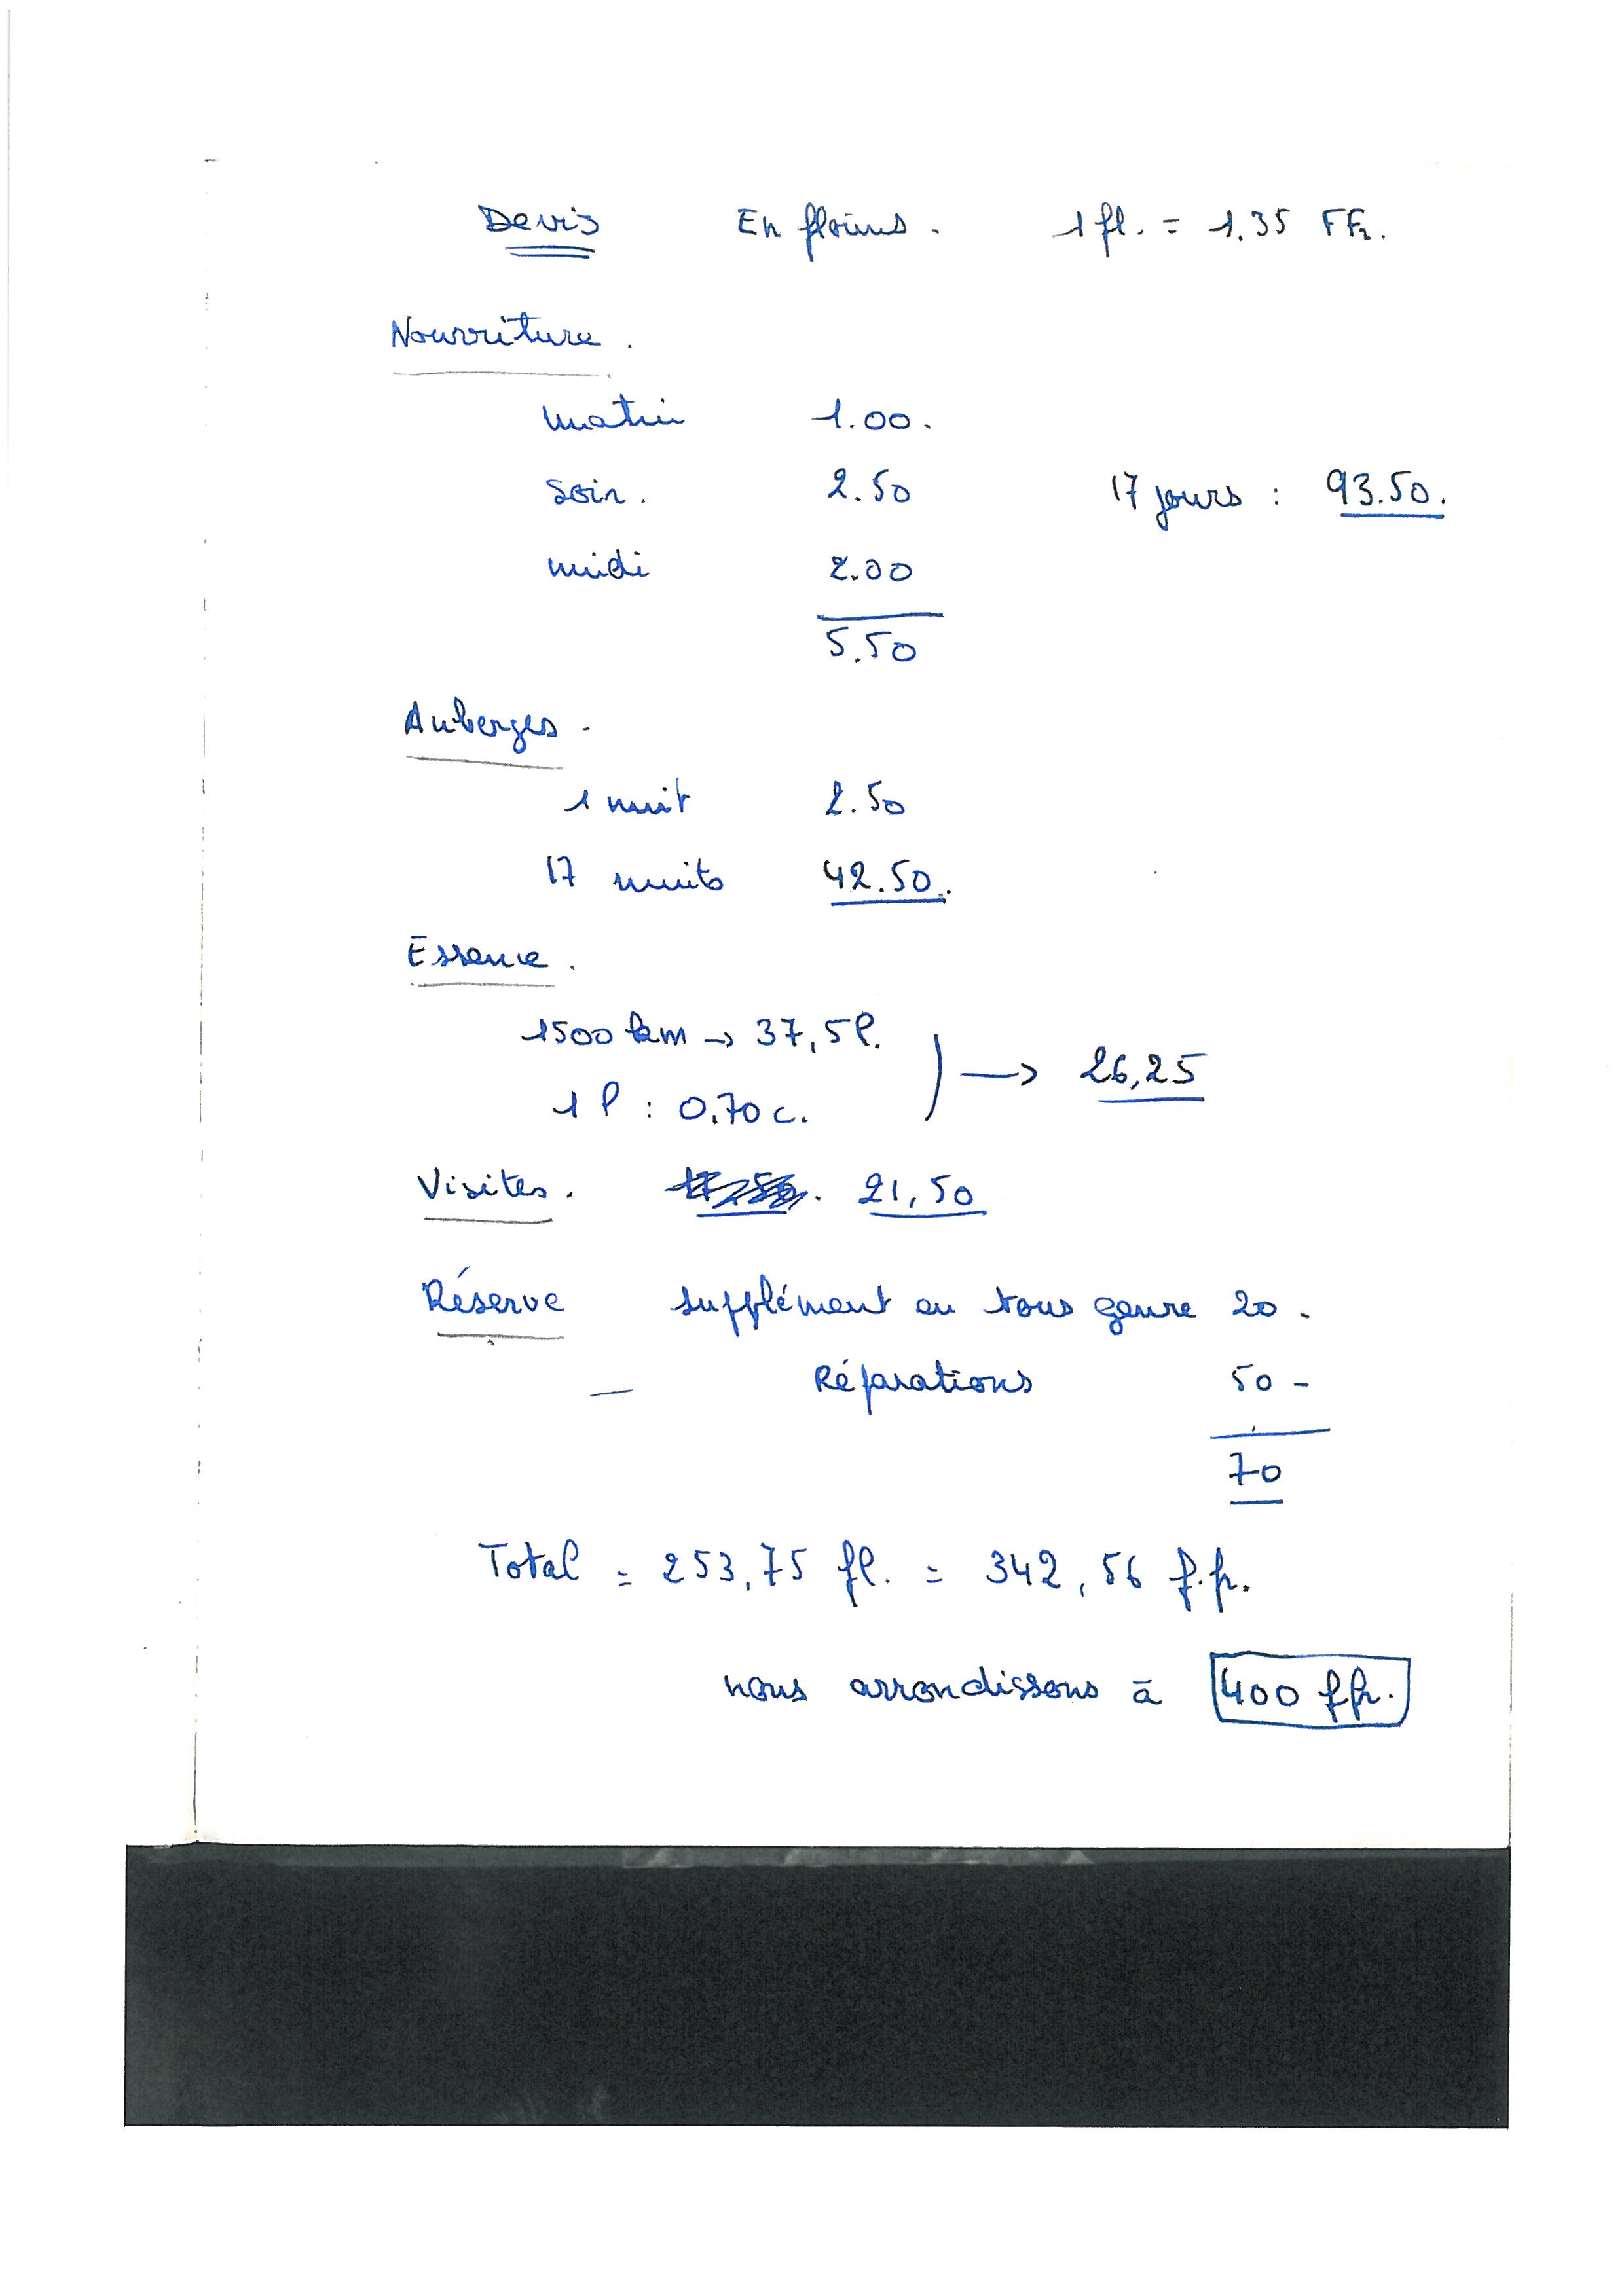 Devis En florins. 1 fl. = 1.35 FFr.
Nourriture.
matin 1.00.
soir. 2.50 17 jours : 93.50.
midi 2.00
5.50
Auberges.
1 nuit 2.50
17 nuits 42.50.
Essence.
1500 km → 37,5 l.
1 l : 0.70 c. → 26,25
Visites. 21,50
Réserve supplément en tous genre 20.
— Réparations 50 -
70
Total = 253,75 fl. = 342,56 f.fr.
nous arrondissons à 400 ffr.